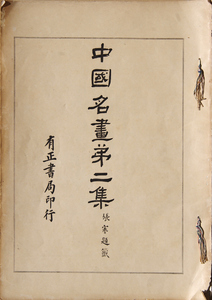 中國名畫第二集
張寒題籤
有正書局印行